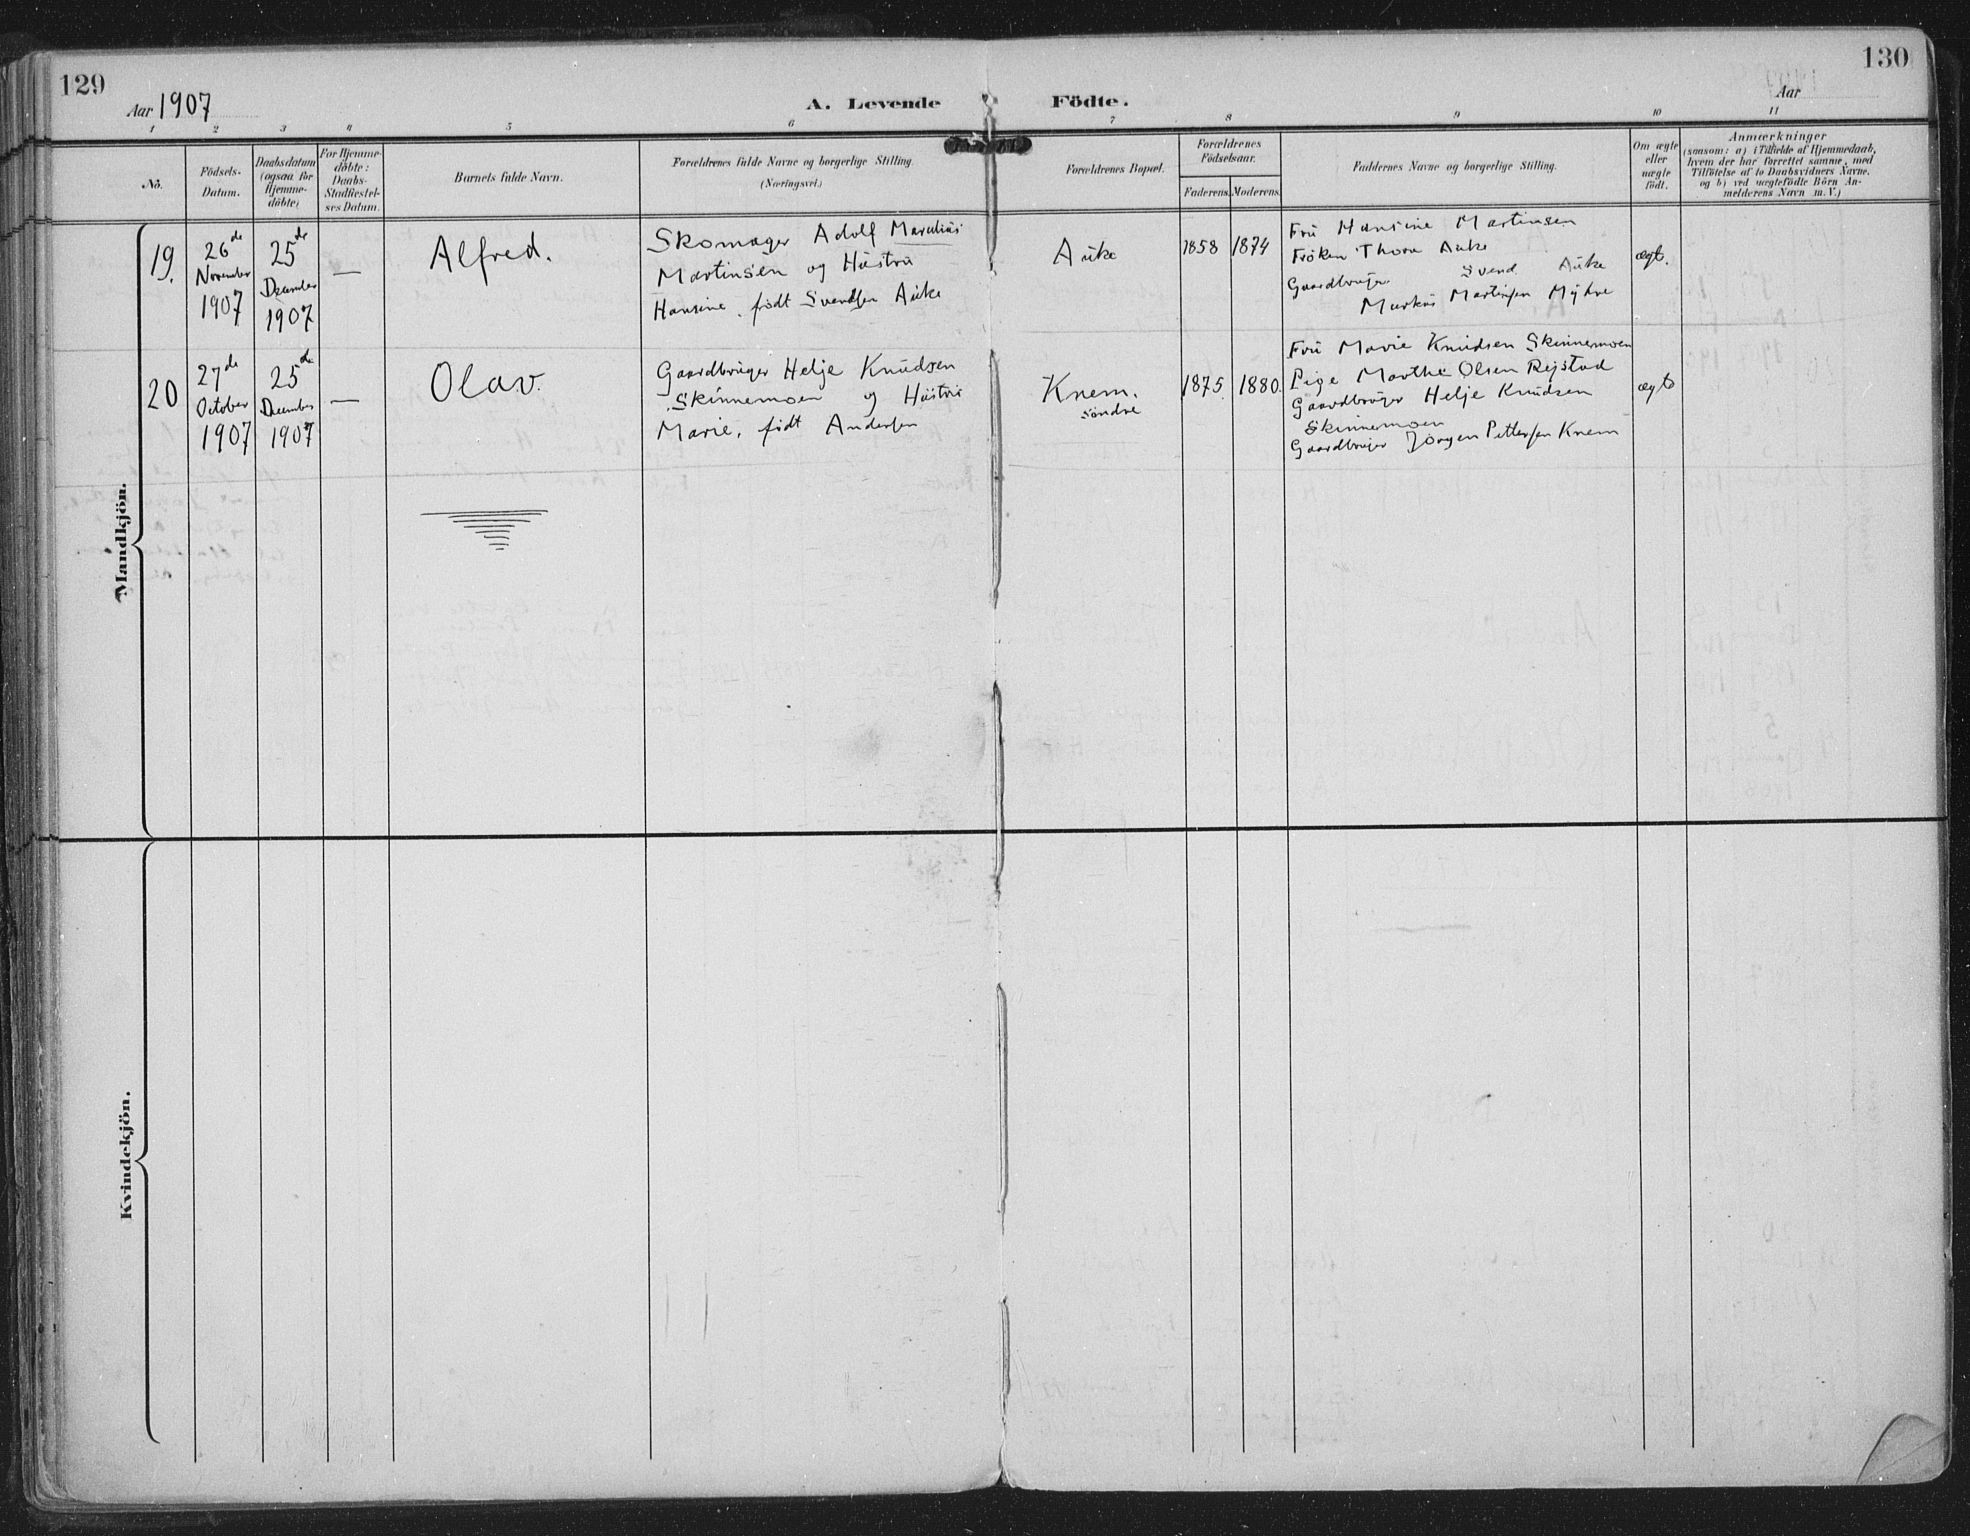 129
Aar 1907
A. Levende Födte.
130
Aar
1 2 3 4 5 6 7 8 9 10 11
No.
Födsels-
Datum.
Daabsdatum
(ogsaa for
Hjemme-
döbte)
For Hjemme-
döbte:
Daabs-
Stadfæstel-
ses Datum.
Barnets fulde Navn.
Forældrenes fulde Navne og borgerlige Stilling.
(Næringsvei.)
Forældrenes Bopæl.
Forældrenes
Födselsaar.
Faderens. Moderens.
Faddernes Navne og borgerlige Stilling.
Om ægte
eller
uægte
födt.
Anmærkninger
(saasom: a) i Tilfælde af Hjemmedaab,
hvem der har forrettet samme, med
Tilföielse af to Daabsvidners Navne,
og b) ved uægtefödte Börn An-
melderens Navn m. V.)
Mandkjön.
19.
26de
November
1907
25de
December
1907
—
Alfred.
Skomager Adolf Marelius
Martinsen og Hustru
Hansine, født Svendsen Auke
Auke
1858
1874
Fru Hansine Martinsen
Frøken Thora Auke
Gaardbruger Svend Auke
Markus Martinsen Myhre
ægte.
20
27de
October
1907
25de
December
1907
—
Olav.
Gaardbruger Helje Knudsen
Skinnemoen og Hustru
Marie, født Andersen
Knem.
søndre
1875
1880.
Fru Marie Knudsen Skinnemoen
Pige Marthe Olsen Rejstad
Gaardbruger Helje Knudsen
Skinnemoen
Gaardbruger Jörgen Pettersen Knem
ægte
Kvindekjön.